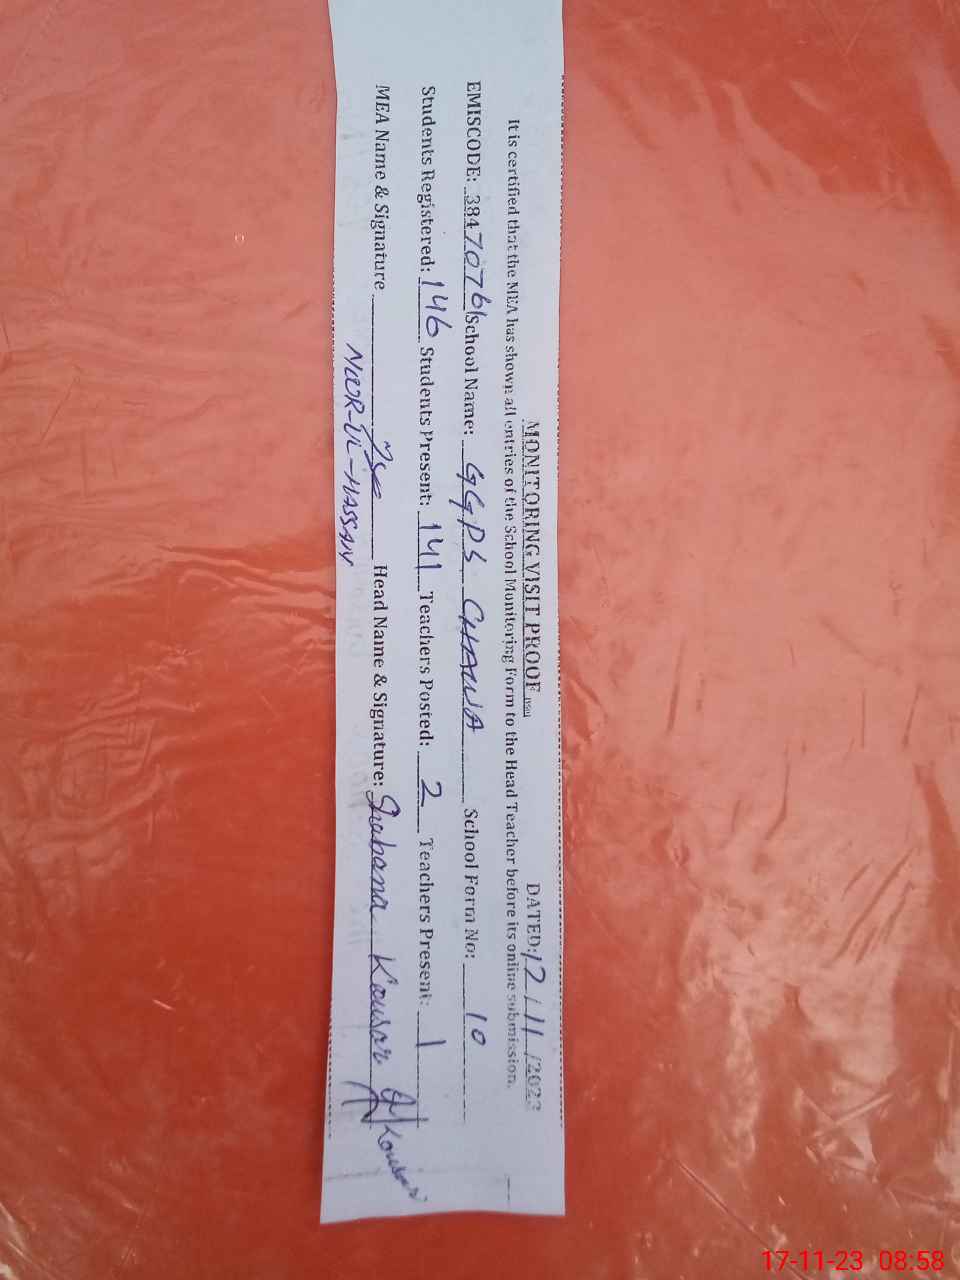 MONITORING VISIT PROOF DATED: 17/11/2023
It is certified that the MEA has shown all entries of the School Monitoring Form to the Head Teacher before its online submission.
EMISCODE: 38470761 School Name: GGPS CHAWA School Form No: 10
Students Registered: 146 Students Present: 141 Teachers Posted: 2 Teachers Present: 1
MEA Name & Signature Head Name & Signature: Shabana Kousar
NOOR-UL-HASSAN
17-11-23 08:58